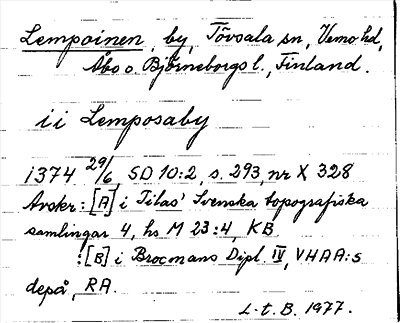 Lempoinen, by, Tövsala sn, Vemo hd,
Åbo o. Björneborgs l., Finland.
ii Lemposaby
1374 29/6, SD 10:2, s. 293, nr X 328
Avskr: [A] i Tilas' Svenska topografiska
samlingar 4, hs M 23:4, KB
:[B] i Brocmans Dipl. IV, VHAA:s
depå, RA.
L-t. B. 1977.